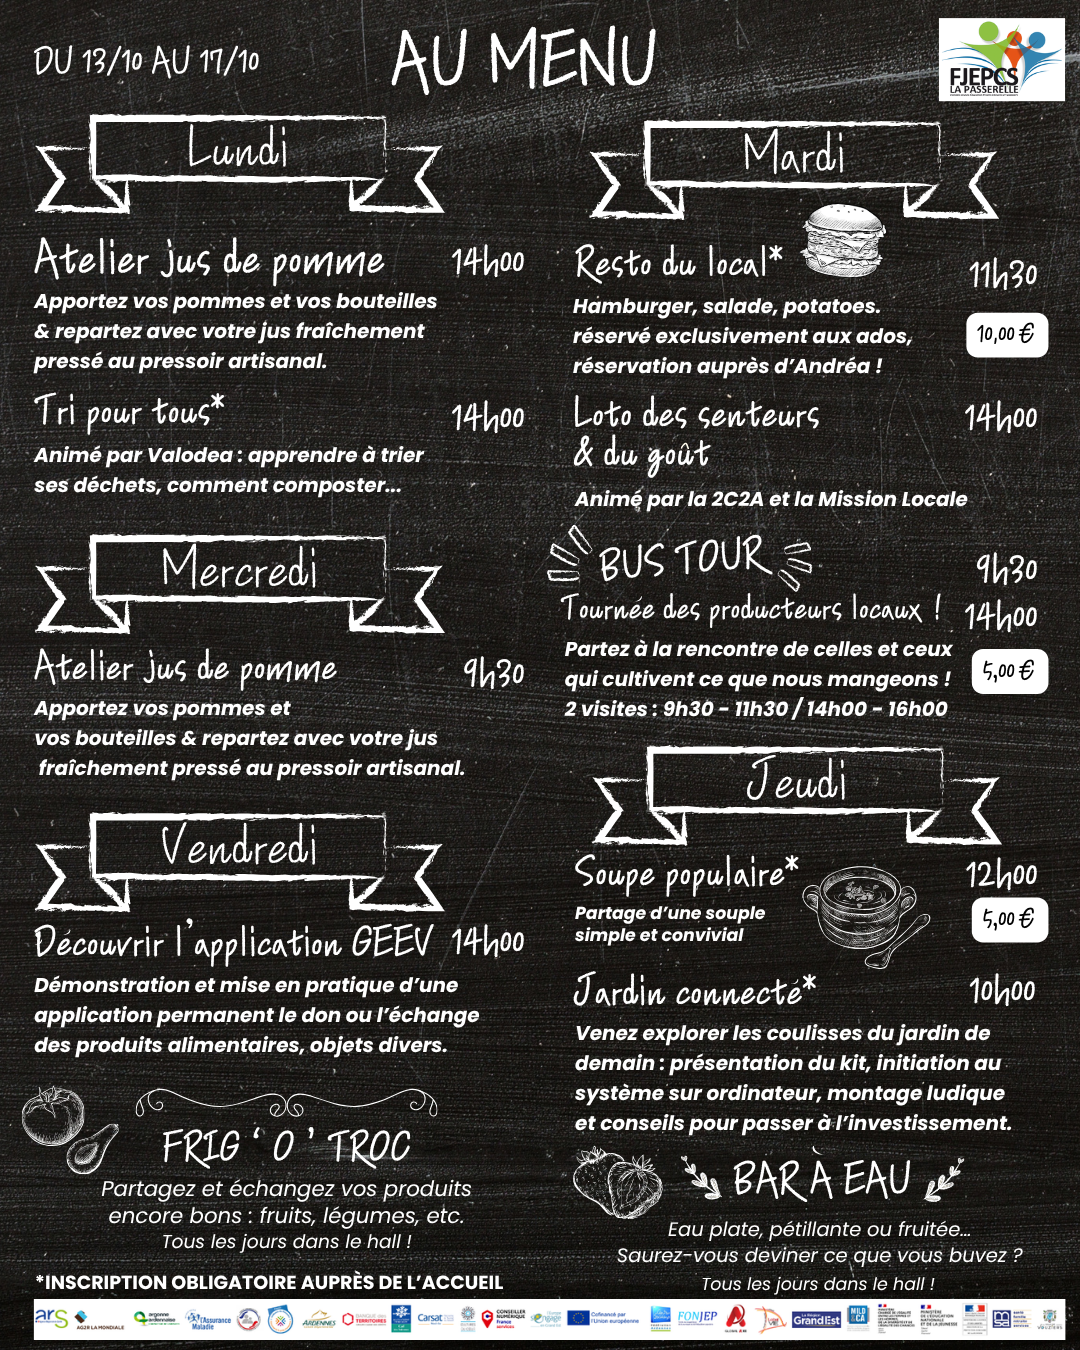 DU 13/10 AU 17/10
AU MENU
FJEPCS
LA PASSERELLE
Lundi
Atelier jus de pomme 14h00
Apportez vos pommes et vos bouteilles
& repartez avec votre jus fraîchement
pressé au pressoir artisanal.
Tri pour tous* 14h00
Animé par Valodea : apprendre à trier
ses déchets, comment composter...
Mardi
Resto du local* 11h30
Hamburger, salade, potatoes.
10,00 €
réservé exclusivement aux ados,
réservation auprès d'Andréa !
Loto des senteurs 14h00
& du goût
Animé par la 2C2A et la Mission Locale
BUS TOUR 9h30
Tournée des producteurs locaux ! 14h00
Partez à la rencontre de celles et ceux
5,00 €
qui cultivent ce que nous mangeons !
2 visites : 9h30 - 11h30 / 14h00 - 16h00
Mercredi
Atelier jus de pomme 9h30
Apportez vos pommes et
vos bouteilles & repartez avec votre jus
fraîchement pressé au pressoir artisanal.
Jeudi
Soupe populaire* 12h00
Partage d'une souple
5,00 €
simple et convivial
Jardin connecté* 10h00
Venez explorer les coulisses du jardin de
demain : présentation du kit, initiation au
système sur ordinateur, montage ludique
et conseils pour passer à l'investissement.
Vendredi
Découvrir l'application GEEV 14h00
Démonstration et mise en pratique d'une
application permanent le don ou l'échange
des produits alimentaires, objets divers.
FRIG ' O ' TROC
Partagez et échangez vos produits
encore bons : fruits, légumes, etc.
Tous les jours dans le hall !
BAR À EAU
Eau plate, pétillante ou fruitée...
Saurez-vous deviner ce que vous buvez ?
Tous les jours dans le hall !
*INSCRIPTION OBLIGATOIRE AUPRÈS DE L'ACCUEIL
ars
AG2R LA MONDIALE
argonne
ardennaise
l'Assurance
Maladie
ARDENNES
BANQUE des
TERRITOIRES
Carsat
CONSEILLER
NUMÉRIQUE
France
services
engage
Cofinancé par
l'Union européenne
FONJEP
La Région
Grand Est
MILD
&CA
MINISTÈRE
DE L'ÉDUCATION
NATIONALE
ET DE LA JEUNESSE
msa